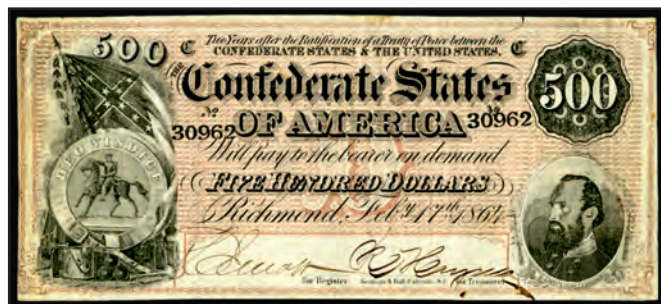 500 C Two Years after the Ratification of a Treaty of Peace between the C
CONFEDERATE STATES & THE UNITED STATES,
THE
Confederate States
500
No No
30962 OF AMERICA 30962
Will pay to the bearer on demand
DEO VINDICE
FIVE HUNDRED DOLLARS
Richmond, Feby. 17th 1864
For Register
for Treasurer